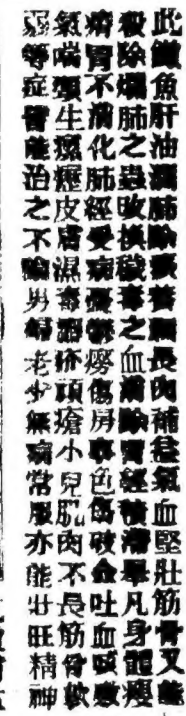 此鱉魚肝油潤肺除痰養顏長肉補益氣血堅壯筋骨又能
殺除爛肺之蟲改換穢毒之血消除胃經積滯舉凡身體瘦
瘠胃不消化肺經受病癆傷房色傷破金吐血咳嗽
氣喘頸生瘰癧皮膚濕毒頭瘡小兒肌肉不長筋骨軟
弱等症皆能治之不論男婦老少無病常服亦能壯旺精神